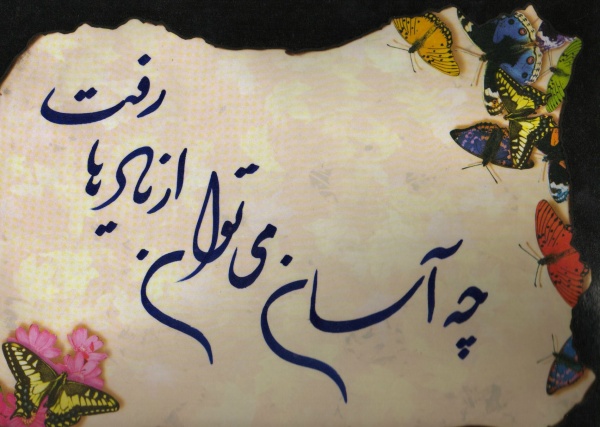 چه آسان
می توان
از یادها
رفت